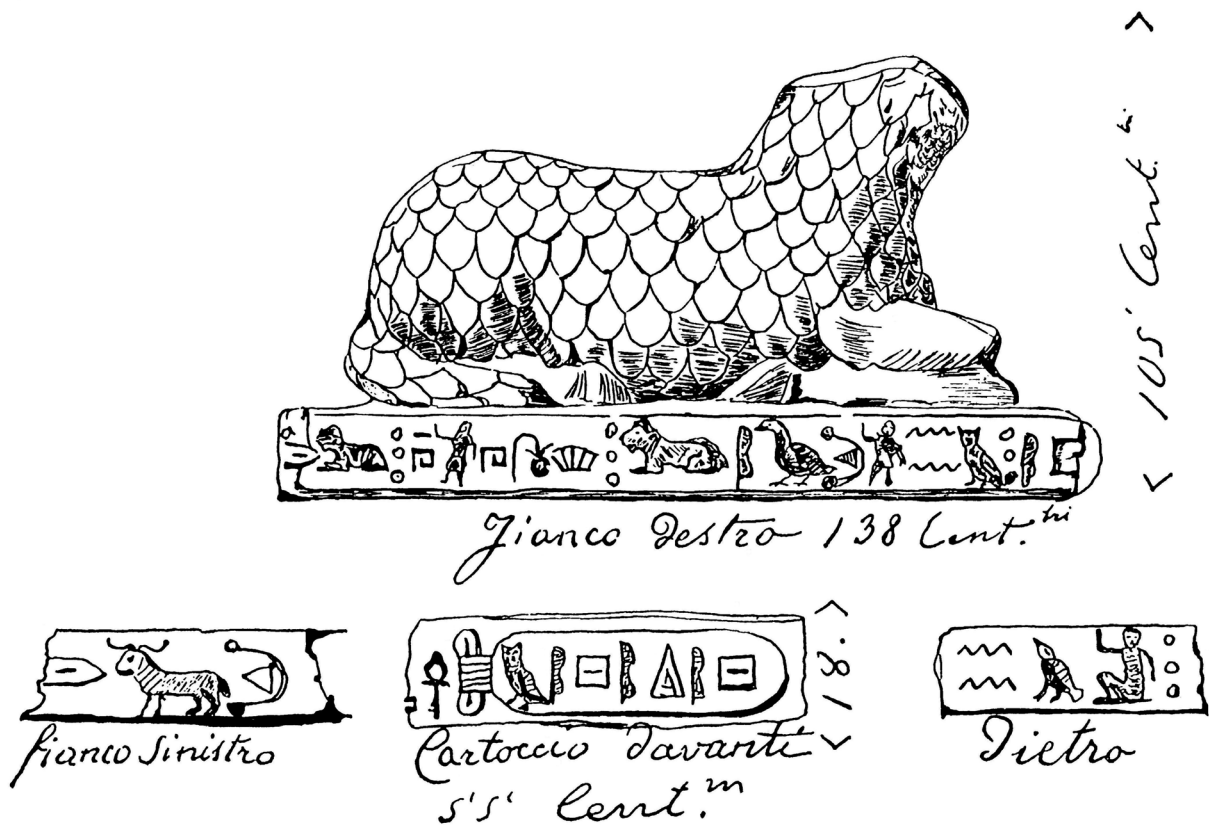 < 105 Cent. tri >
Fianco Destro 138 Cent. tri
fianco Sinistro
Cartoccio davanti
55 Cent. m
< 18. >
Dietro